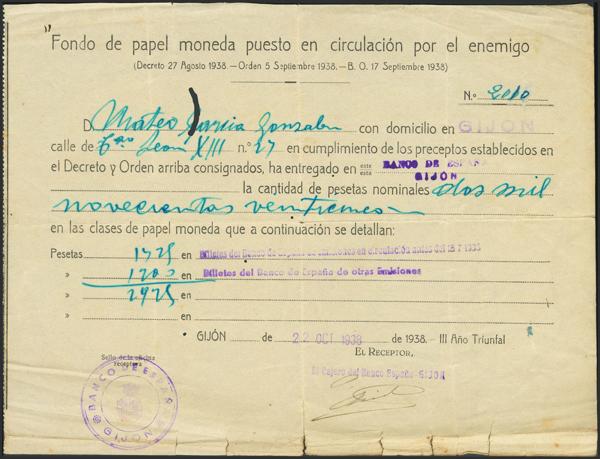 "Fondo de papel moneda puesto en circulación por el enemigo
(Decreto 27 Agosto 1938.—Orden 5 Septiembre 1938.—B. O. 17 Septiembre 1938)
N.º 2010
D. Mateo García Gonzalez con domicilio en GIJON
calle de León XIII n.º 27 en cumplimiento de los preceptos establecidos
en el Decreto y Orden arriba consignados, ha entregado en este BANCO DE ESPAÑA
este GIJÓN
la cantidad de pesetas nominales dos mil
novecientas veinticinco
en las clases de papel moneda que a continuación se detallan:
Pesetas 1725 en Billetes del Banco de España de emisiones en circulación antes del 18 7 1936
» 1200 en Billetes del Banco de España de otras Emisiones
» 2925 en
» en
GIJÓN de 22 OCT 1938 de 1938.—III Año Triunfal
Sello de la oficina
receptora
EL RECEPTOR,
El Cajero del Banco España-GIJON
BANCO DE ESPAÑA
GIJON